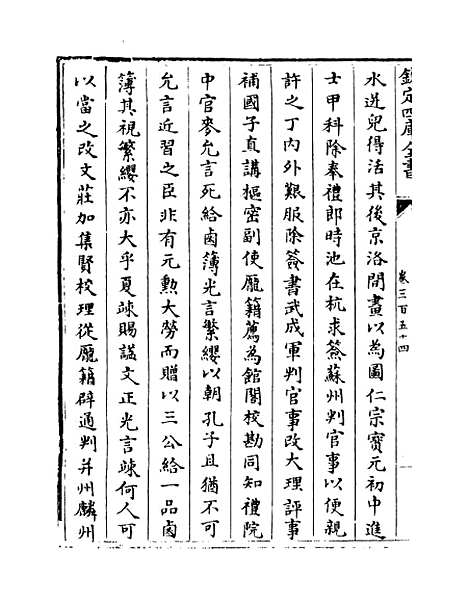 欽定四庫全書
卷三百五十四
水迸兒得活其後京洛間畫以為圖仁宗寶元初中進
士甲科除奉禮郎時池在杭求簽蘇州判官事以便親
許之丁内外艱服除簽書武成軍判官事改大理評事
補國子直講樞密副使龐籍薦為館閣校勘同知禮院
中官麥允言死給鹵簿光言繁纓以朝孔子且猶不可
允言近習之臣非有元勲大勞而贈以三公給一品鹵
簿其視繁纓不亦大乎夏竦賜諡文正光言竦何人可
以當之改文莊加集賢校理從龐籍辟通判并州麟州